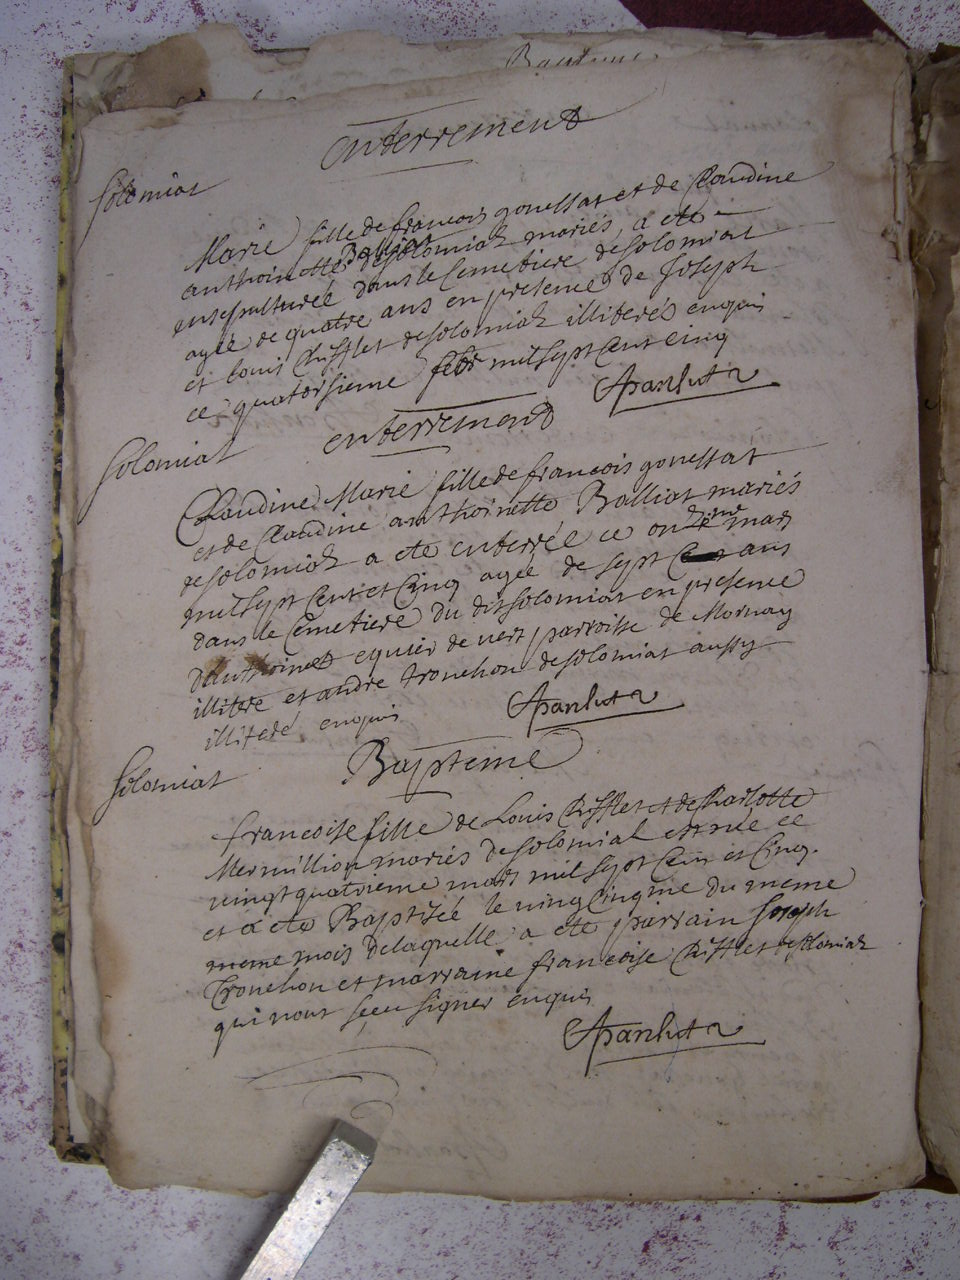 enterrement
Solomiat
Marie fille de francois gonessat et de Claudine
anthoinette Balliat de solomiat mariés, a ete
ensepulturée dans le Cemetiere de solomiat
agée de quatre ans en presence de Joseph
et Louis Chifflet de solomiat illiterés enquis
ce quatorsieme febr mil sept Cent Cinq
enterrement
Solomiat
Claudine Marie fille de francois gonessat
et de Claudine anthoinette Balliat mariés
de solomiat a ete enterrée ce onzeime mars
mil sept Cent et Cinq agée de sept ans
dans le Cemetiere du dit solomiat en presence
d'anthoine equier de vers parroisse de Mornay
illiteré et andré tronchon de solomiat aussy
illiteré enquis
Solomiat
Bapteme
francoise fille de Louis Chifflet et de Charlotte
Mermillion mariés de solomiat est née ce
vingt quatrieme mars mil sept Cent et Cinq.
et a ete Baptizée le vingt Cinqme du meme
meme mois de laquelle a ete parrain Joseph
Tronchon et marraine francoise Chifflet de solomiat
qui n'ont sceu signer enquis